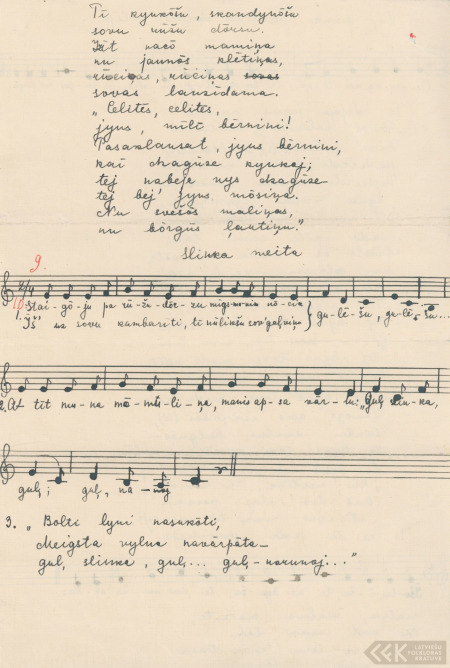 Tī kyukōšu, skandynōšu
sovu rūžu dōrzu.
Īīt vacō mamiņa
nu jaunōs klētiņas,
rūciņas, rūciņas sovas
sovas lauzīdama.
„Celitēs, celitēs,
jyus, mīlī bērniņi!
Pasaklausat, jyus bērniņi,
kai dzagūze kyukoj;
tej nabeja nys dzagūze
tej bej' žyns mōsiņa.
Nu svešōs maliņas,
nu bōrgūs ļautiņu."
Slinka meita
9.
2/4
1. Staigōju pa rūžu dōrzu nōcia
1. Īš uz sovu kambareiti, gulēšu, gulēšu...
2. At tēt muna māmuliņa, manis apsavārtu: „Guļ slinka,
guļ; guļ, nanoj
3. „Bolti lyni nasukōti,
Meigsta vylna navārpāta–
guļ, slinka, guļ... guļ-narunoj..."
LATVIEŠU
FOLKLORAS
KRĀTUVE